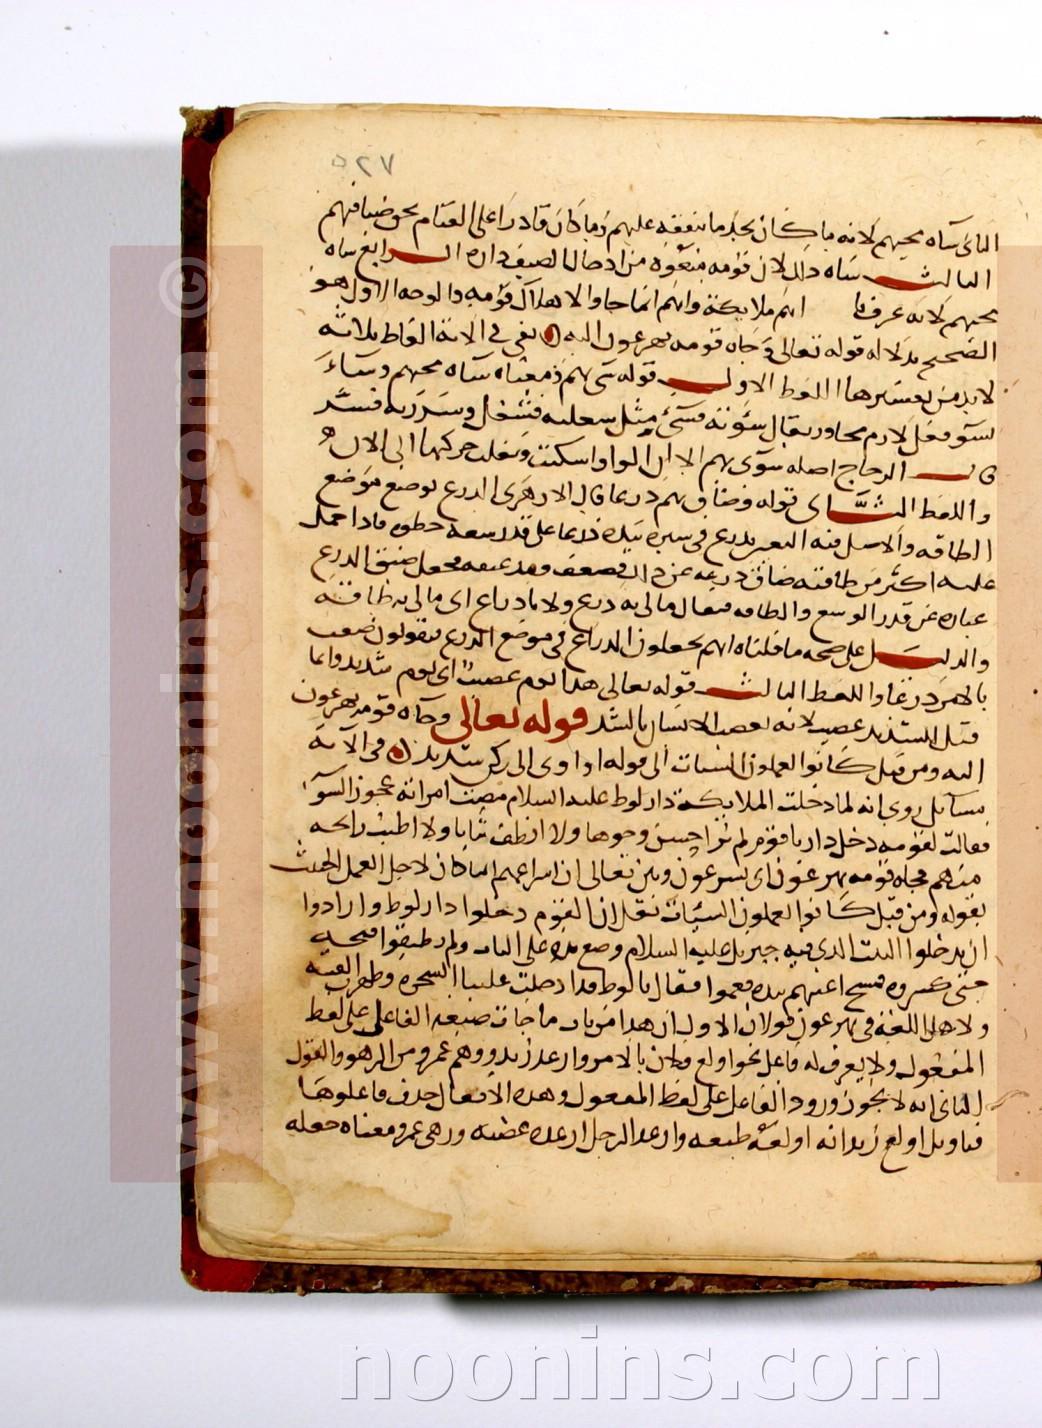 ٥٢٧
الثاني ساه مجيهم لانه ما كان يجد ما ينفقه عليهم وما كان قادرا على القيام بحق ضيافتهم
الثالث ساه ذلك لان قومه منعوه من ادخال الضيف داره الرابع ساه
مجيهم لانه عرف انهم ملايكة وانهم انما جاوا لاهلاك قومه والوجه الاول هو
الصحيح بدلالة قوله تعالى وجاه قومه يهرعون اليه بقي في الاية الفاظ ثلاثة
لابد من تفسيرها اللفظ الاول قوله سي بهم ومعناه ساه مجيهم وساء
يسو فعل لازم مجاور يقال سؤته فسئ مثل شغلته فشغل وسررته فسر
قال الزجاج اصله سوى بهم الا ان الواو اسكنت ونقلت حركتها الى الاول
واللفظ الثاني قوله وضاق بهم ذرعا قال الازهري الذرع يوضع موضع
الطاقة والاصل فيه البعير يذرع في سيره بيديه ذرعا على قدر سعة خطوه فاذا حمل
عليه اكثر من طاقته ضاق ذرعه عن ذلك فضعف ومد عنقه فجعل ضيق الذرع
عبارة عن قدر الوسع والطاقه فيقال مالي به ذرع ولا ذراع اى مالي به طاقة
والدليل على صحه ما قلناه انهم يجعلون الذراع في موضع الذرع فيقولون ضقت
بالامر ذرعا واللفظ الثالث قوله تعالى هذا يوم عصيب اى يوم شديد وانما
قيل للشديد عصيب لانه يعصب الانسان بالشر قوله تعالى وجاه قومه يهرعون
اليه ومن قبل كانوا يعملون السيات الى قوله او اوى الى ركن شديد في الاية
مسايل روى انه لما دخلت الملايكة دار لوط عليه السلام مضت امراته عجوز السوء
فقالت لقومه دخل دارنا قوم لم نر احسن وجوها ولا انظف ثيابا ولا اطيب رائحه
منهم فجاه قومه يهرعون اى يسرعون وبين تعالى ان اسراعهم انما كان لاجل العمل الخبيث
بقوله ومن قبل كانوا يعملون السيئات نقل ان القوم دخلوا دار لوط وارادوا
ان يدخلوا البيت الذي فيه جبريل عليه السلام وضع يده على الباب ولم يطيقوا فتحه
حتى كسروه فمسح اعينهم بيده فعموا فقالو يا لوط قد ادخلت علينا السحره وظهرت الفتنه
ولاهل اللغة في يهرعون قولان الاول ان هذا من باب ما جات صيغة الفاعل على لفظ
المفعول ولا يعرف له فاعل نحو اولع فلان بالامر وارعد زيد ووهم عمرو من الزهو والقول
الثاني انه لا يجوز ورود الفاعل على لفظ المفعول وهذه الافعال حذف فاعلوها
فتاويل اولع زيد انه اولعه طبعه وارعد الرجل ارعده غضبه وزهى عمرو معناه جعله
© www.noonins.com
noonins.com